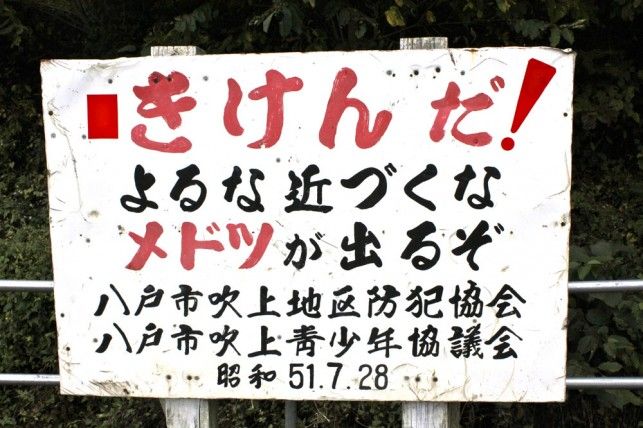 きけんだ!
よるな近づくな
メドツが出るぞ
八戸市吹上地区防犯協会
八戸市吹上青少年協議会
昭和 51.7.28